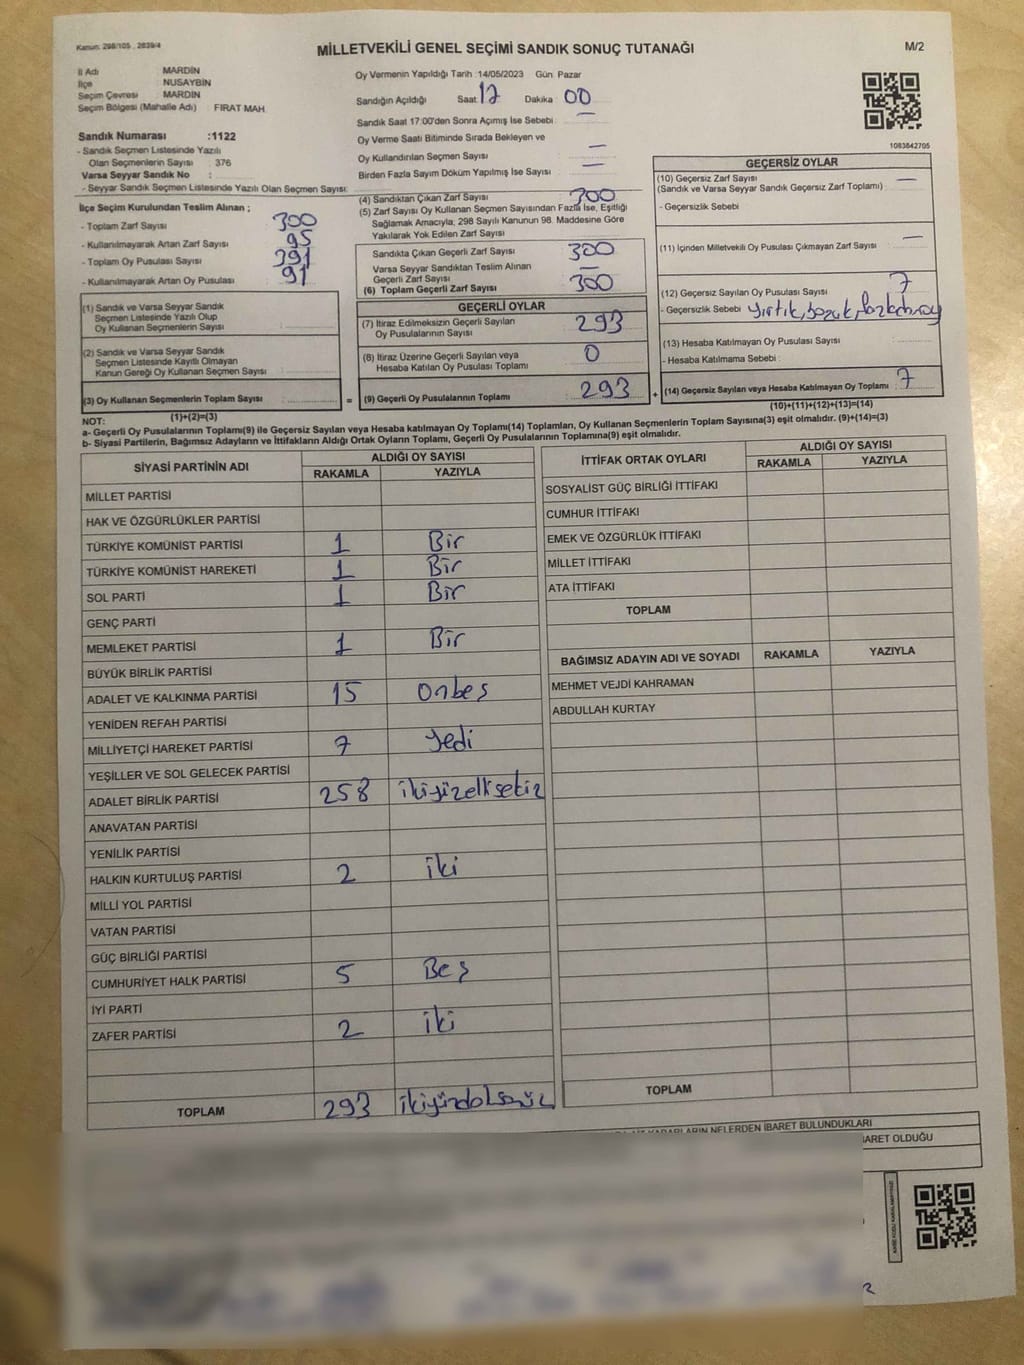 Kanun: 298/105 , 2839/4
MİLLETVEKİLİ GENEL SEÇİMİ SANDIK SONUÇ TUTANAĞI
M/2
İl Adı MARDİN
İlçe NUSAYBİN
Seçim Çevresi MARDİN
Seçim Bölgesi (Mahalle Adı) FIRAT MAH.
Sandık Numarası :1122
- Sandık Seçmen Listesinde Yazılı
Olan Seçmenlerin Sayısı : 376
Varsa Seyyar Sandık No :
- Seyyar Sandık Seçmen Listesinde Yazılı Olan Seçmen Sayısı:
Oy Vermenin Yapıldığı Tarih :14/05/2023 Gün Pazar
Sandığın Açıldığı Saat 17 Dakika 00
Sandık Saat 17:00'den Sonra Açımış İse Sebebi : —
Oy Verme Saati Bitiminde Sırada Bekleyen ve
Oy Kullandırılan Seçmen Sayısı —
Birden Fazla Sayım Döküm Yapılmış İse Sayısı : —
1083842705
İlçe Seçim Kurulundan Teslim Alınan ;
- Toplam Zarf Sayısı : 300
- Kullanılmayarak Artan Zarf Sayısı : 95
- Toplam Oy Pusulası Sayısı : 391
- Kullanılmayarak Artan Oy Pusulası : 91
(1) Sandık ve Varsa Seyyar Sandık
Seçmen Listesinde Yazılı Olup
Oy Kullanan Seçmenlerin Sayısı :
(2) Sandık ve Varsa Seyyar Sandık
Seçmen Listesinde Kayıtlı Olmayan
Kanun Gereği Oy Kullanan Seçmen Sayısı :
(3) Oy Kullanan Seçmenlerin Toplam Sayısı :
(1)+(2)=(3)
(4) Sandıktan Çıkan Zarf Sayısı : 300
(5) Zarf Sayısı Oy Kullanan Seçmen Sayısından Fazla İse, Eşitliği
Sağlamak Amacıyla, 298 Sayılı Kanunun 98. Maddesine Göre
Yakılarak Yok Edilen Zarf Sayısı
Sandıkta Çıkan Geçerli Zarf Sayısı 300
Varsa Seyyar Sandıktan Teslim Alınan
Geçerli Zarf Sayısı —
(6) Toplam Geçerli Zarf Sayısı 300
GEÇERLİ OYLAR
(7) İtiraz Edilmeksizin Geçerli Sayılan
Oy Pusulalarının Sayısı : 293
(8) İtiraz Üzerine Geçerli Sayılan veya
Hesaba Katılan Oy Pusulası Toplamı 0
= (9) Geçerli Oy Pusulalarının Toplamı : 293 +
GEÇERSİZ OYLAR
(10) Geçersiz Zarf Sayısı —
(Sandık ve Varsa Seyyar Sandık Geçersiz Zarf Toplamı)
- Geçersizlik Sebebi
(11) İçinden Milletvekili Oy Pusulası Çıkmayan Zarf Sayısı —
(12) Geçersiz Sayılan Oy Pusulası Sayısı 7
- Geçersizlik Sebebi yırtık, bozuk,
(13) Hesaba Katılmayan Oy Pusulası Sayısı :
- Hesaba Katılmama Sebebi :
(14) Geçersiz Sayılan veya Hesaba Katılmayan Oy Toplamı : 7
(10)+(11)+(12)+(13)=(14)
NOT:
a- Geçerli Oy Pusulalarının Toplamı(9) ile Geçersiz Sayılan veya Hesaba katılmayan Oy Toplamı(14) Toplamları, Oy Kullanan Seçmenlerin Toplam Sayısına(3) eşit olmalıdır. (9)+(14)=(3)
b- Siyasi Partilerin, Bağımsız Adayların ve İttifakların Aldığı Ortak Oyların Toplamı, Geçerli Oy Pusulalarının Toplamına(9) eşit olmalıdır.
SİYASİ PARTİNİN ADI
ALDIĞI OY SAYISI
RAKAMLA YAZIYLA
MİLLET PARTİSİ
HAK VE ÖZGÜRLÜKLER PARTİSİ
TÜRKİYE KOMÜNİST PARTİSİ 1 Bir
TÜRKİYE KOMÜNİST HAREKETİ 1 Bir
SOL PARTİ 1 Bir
GENÇ PARTİ
MEMLEKET PARTİSİ 1 Bir
BÜYÜK BİRLİK PARTİSİ
ADALET VE KALKINMA PARTİSİ 15 onbeş
YENİDEN REFAH PARTİSİ
MİLLİYETÇİ HAREKET PARTİSİ 7 yedi
YEŞİLLER VE SOL GELECEK PARTİSİ
ADALET BİRLİK PARTİSİ 258 ikiyüzellisekiz
ANAVATAN PARTİSİ
YENİLİK PARTİSİ
HALKIN KURTULUŞ PARTİSİ 2 iki
MİLLİ YOL PARTİSİ
VATAN PARTİSİ
GÜÇ BİRLİĞİ PARTİSİ
CUMHURİYET HALK PARTİSİ 5 Beş
İYİ PARTİ
ZAFER PARTİSİ 2 iki
TOPLAM 293
İTTİFAK ORTAK OYLARI
ALDIĞI OY SAYISI
RAKAMLA YAZIYLA
SOSYALİST GÜÇ BİRLİĞİ İTTİFAKI
CUMHUR İTTİFAKI
EMEK VE ÖZGÜRLÜK İTTİFAKI
MİLLET İTTİFAKI
ATA İTTİFAKI
TOPLAM
BAĞIMSIZ ADAYIN ADI VE SOYADI RAKAMLA YAZIYLA
MEHMET VEJDİ KAHRAMAN
ABDULLAH KURTAY
TOPLAM
KARARLARIN NELERDEN İBARET BULUNDUKLARI
BARET OLDUĞU